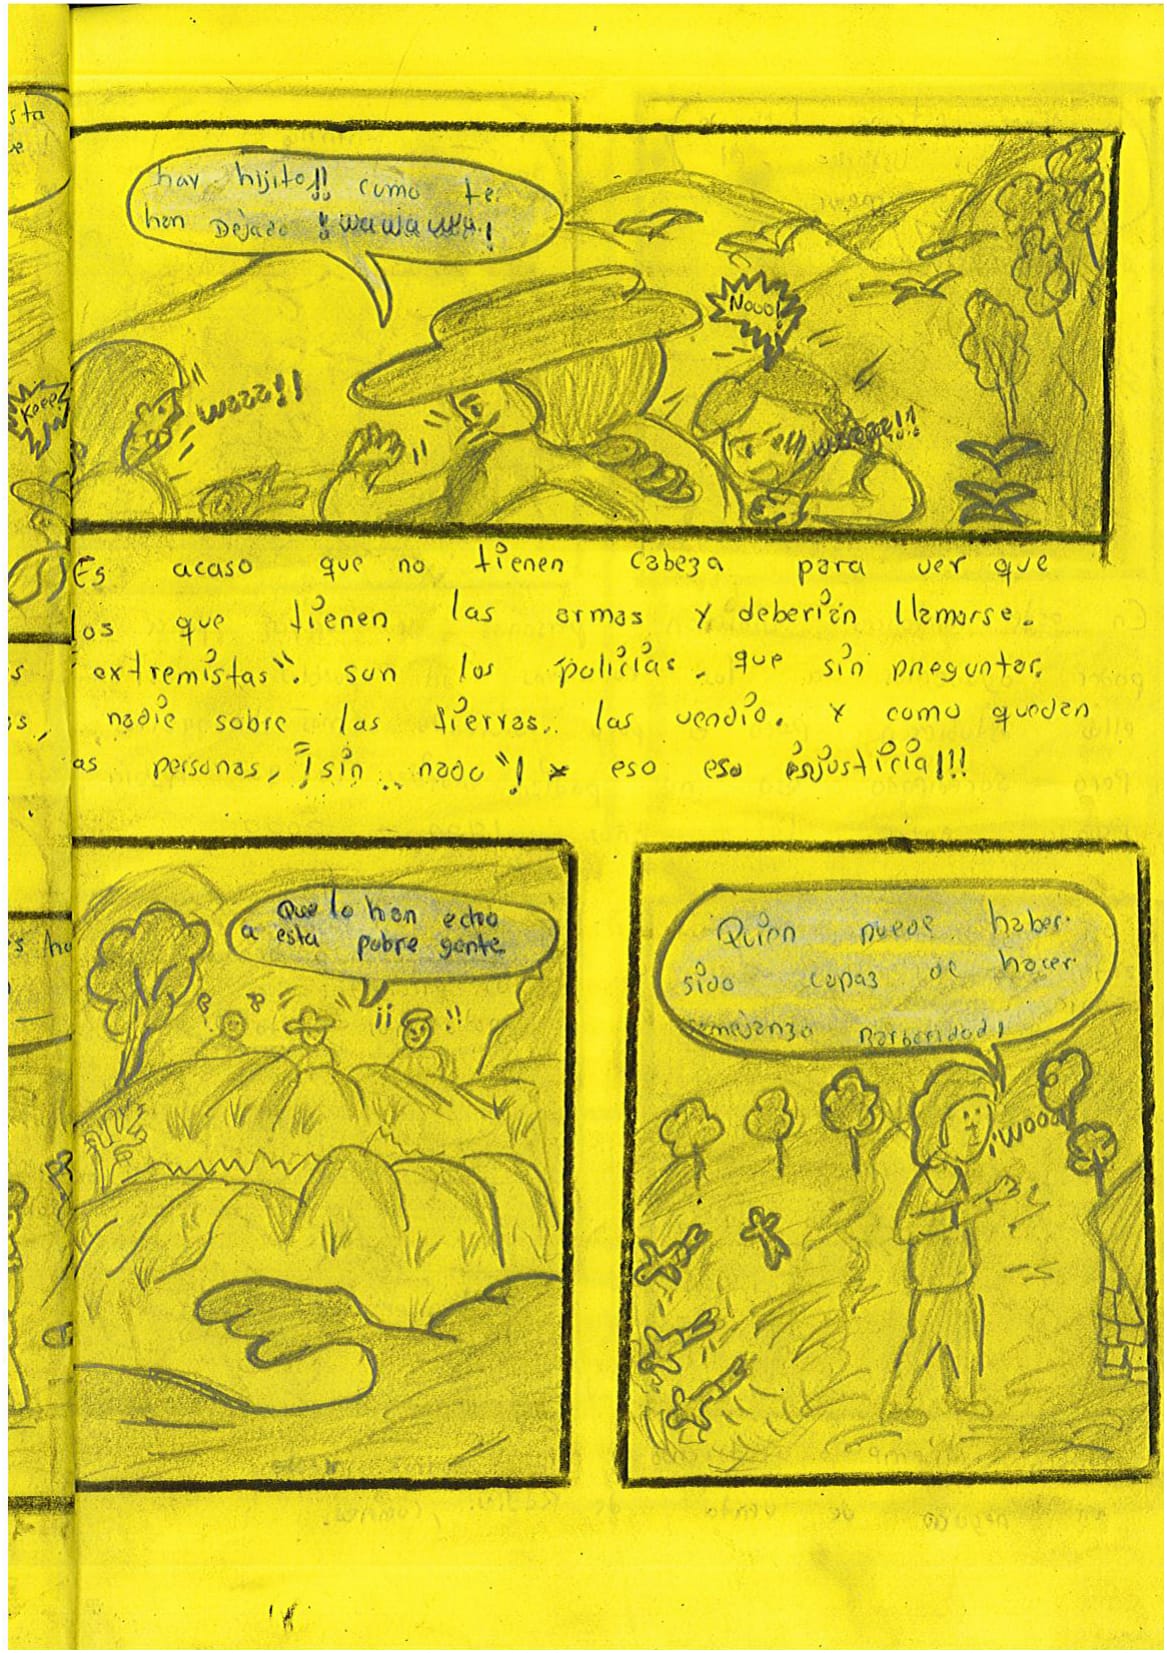 sta
hay hijito!! como te
han Dejado ¡wawawa!
Nooo!
Keeee
Es acaso que no tienen cabeza para ver que
los que tienen las armas y deberian llamarse.
"extremistas". son los policias. que sin preguntar.
nadie sobre las tierras. las vendio. y como quedan
as personas, "¡sin nada"! x eso eso injusticia!!!
Que lo han echo
a esta pobre gente
¡¡ !!
Quien puede haber
sido capaz de hacer
semejanza Barbaridad!
¡Wooo!